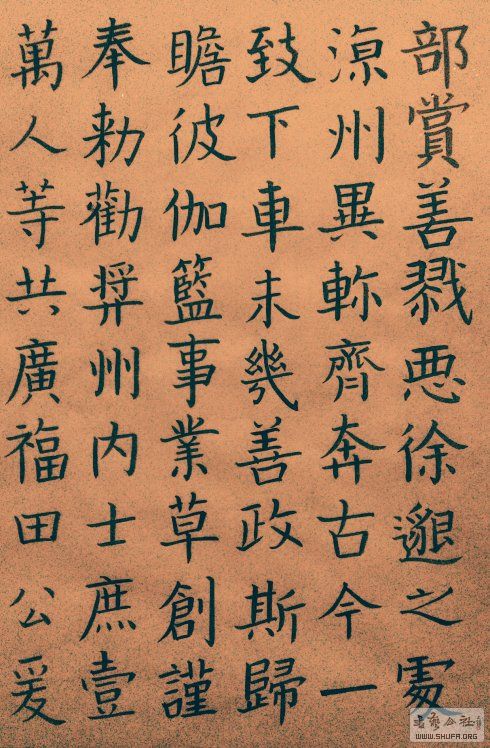 部賞善戮惡徐邈之處
涼州異軫齊奔古今一
致下車未幾善政斯歸
瞻彼伽籃事業草創謹
奉勅勸奬州內士庶壹
萬人等共廣福田公爰
WWW.SHUFA.ORG